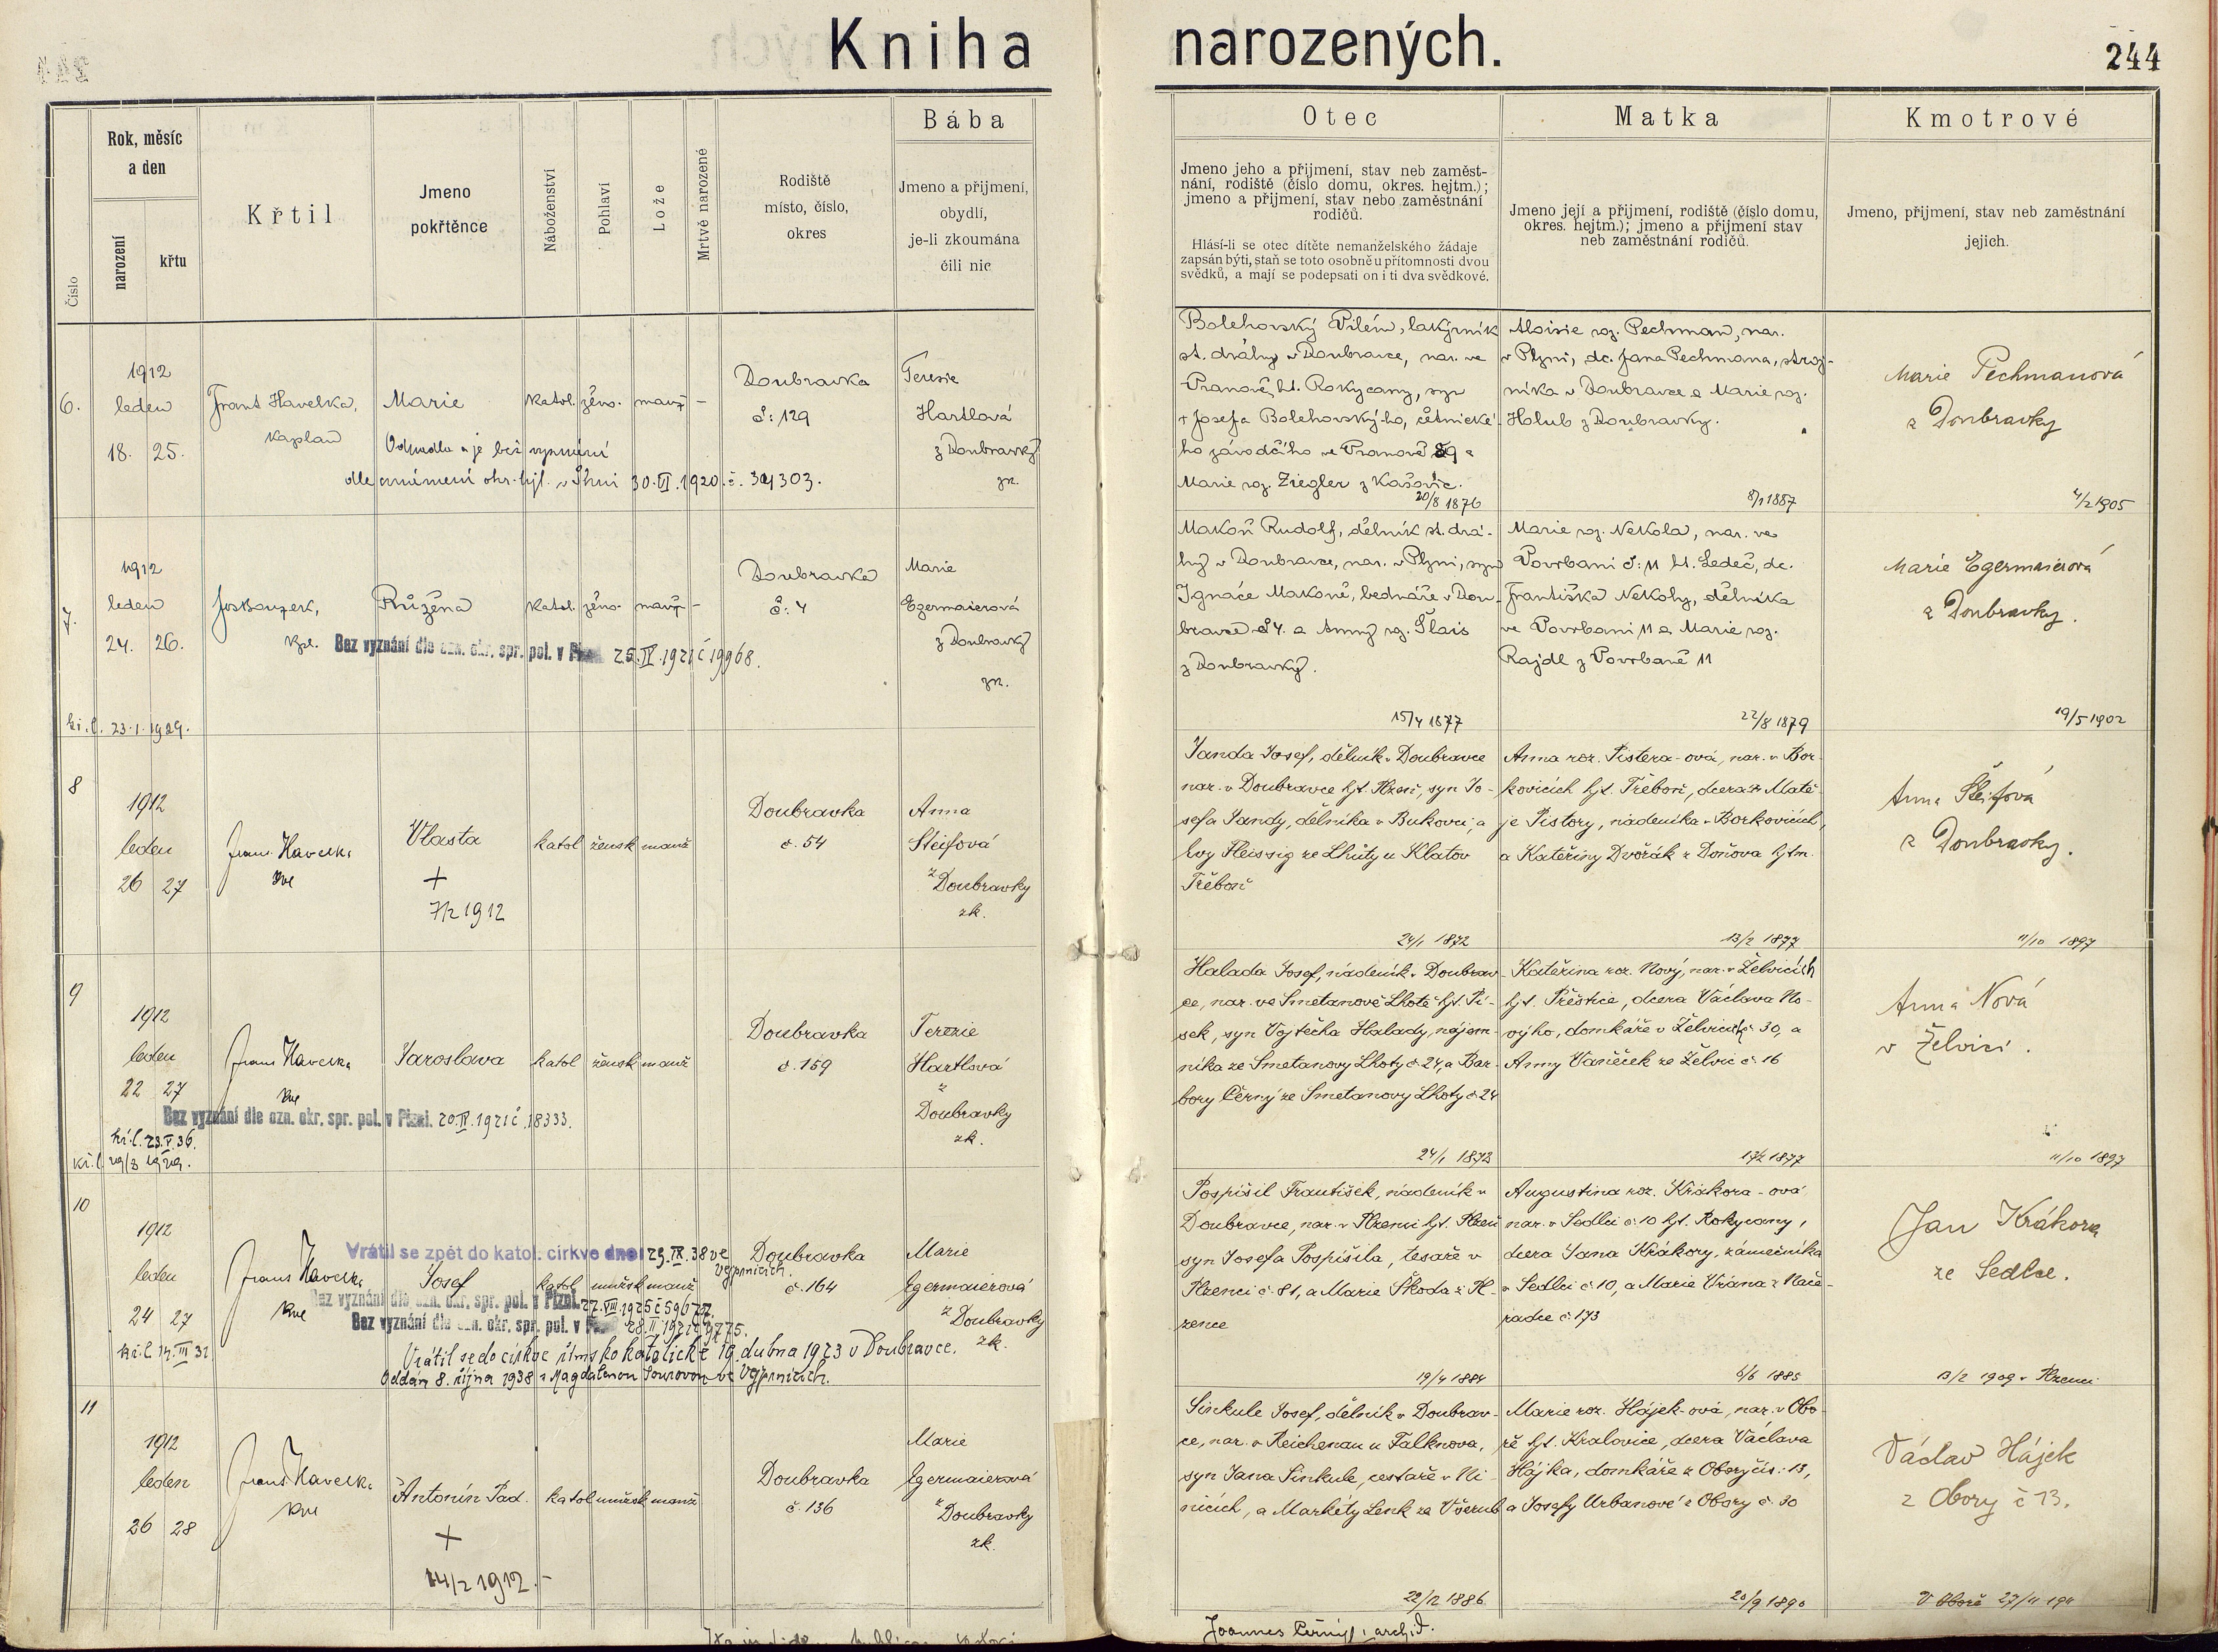 Kniha narozených.
244
Číslo
Rok, měsíc
a den
narození
křtu
Křtil
Jmeno
pokřtěnce
Náboženství
Pohlaví
Lože
Mrtvě narozené
Rodiště
místo, číslo,
okres
Bába
Jmeno a přijmení,
obydlí,
je-li zkoumána
čili nic
Otec
Jmeno jeho a přijmení, stav neb zaměst-
nání, rodiště (číslo domu, okres. hejtm.);
jmeno a přijmení, stav nebo zaměstnání
rodičů.
Hlásí-li se otec dítěte nemanželského žádaje
zapsán býti, staň se toto osobně u přítomnosti dvou
svědků, a mají se podepsati on i ti dva svědkové.
Matka
Jmeno její a přijmení, rodiště (číslo domu,
okres. hejtm.); jmeno a přijmení stav
neb zaměstnání rodičů.
Kmotrové
Jmeno, přijmení, stav neb zaměstnání
jejich.
6.
1912
leden
18. 25.
Frant. Havelka,
kaplan
Marie
katol. žens. manž. -
Doubravka
č: 129
Terezie
Hartlová
z Doubravky
zk.
30.VI.1920.
Bolehovský Vilém, lakýrník
st. dráhy v Doubravce, nar. ve
Vranově, ht. Rokycany, syn
† Josefa Bolehovský-ho, četnické-
ho závodčího ve Vranově 89 a
Marie roz. Ziegler z Kašovic.
20/8 1876
Aloisie roz. Pechman, nar.
v Plzni, dc. Jana Pechmana, stroj-
níka v Doubravce a Marie roz.
Holub z Doubravky.
8/1 1887
Marie Pechmanová
z Doubravky
4/2 1905
7.
1912
leden
24. 26.
kpl.
Růžena
katol. žens. manž. -
Bez vyznání dle ozn. okr. spr. pol. v Plzni 25.IV.1921 č 19968.
Doubravka
č: 4
Marie
Egermaierová
z Doubravky
zk.
Makoň Rudolf, dělník st. drá-
hy v Doubravce, nar. v Plzni, syn
Ignáce Makoně, bednáře v Dou-
bravce č 4. a Anny roz. Šlais
z Doubravky.
15/4 1877
Marie roz. Nekola, nar. ve
Povrbani č: 11 ht. Ledeč, dc.
Františka Nekoly, dělníka
ve Povrbani 11 a Marie roz.
Rajdl z Povrbaně 11
22/8 1879
Marie Egermaierová
z Doubravky.
19/5 1902
kř.l. 23.1.1929.
8
1912
leden
26 27
Frant. Havelka
Vlasta
+
7/2 1912
katol žensk manž
Doubravka
č. 54
Anna
Šleifová
z Doubravky
zk.
Janda Josef, dělník v Doubravce
nar. v Doubravce hjt. Plzeň, syn Jo-
sefa Jandy, dělníka v Bukovci, a
Evy Fleissig ze Lhůty u Klatov
Třeboň
24/1 1872
Anna roz. Pistora-ová, nar. v Bor-
kovicích hjt. Třeboň, dcera † Matě-
je Pistory, nádeníka v Borkovicích,
a Kateřiny Dvořák z Doňova hjtm.
13/2 1877
Anna Šleifová
z Doubravky.
11/10 1897
9
1912
leden
22 27
Frant. Havelka
Jaroslava
katol žensk manž
Doubravka
č. 159
Terezie
Hartlová
z
Doubravky
zk.
Bez vyznání dle ozn. okr. spr. pol. v Plzni. 20.IV.1921 č.18333.
kř.l. 23.V.36.
Halada Josef, nádeník v Doubrav-
ce, nar. ve Smetanově Lhotě hjt. Pí-
sek, syn Vojtěcha Halady, nájem-
níka ze Smetanovy Lhoty č 24, a Bar-
bory Černý ze Smetanovy Lhoty č 24
24/1 1873
Kateřina roz. Nový, nar. v Želvicích
hjt. Přeštice, dcera Václava No-
výho, domkáře v Želvicích č 30, a
Anny Vaněček ze Želvic č. 16
17/2 1877
Anna Nová
v Želvici.
11/10 1897
10
1912
leden
24 27
kř.l. 14.III 31
Frant. Havelka
Vrátil se zpět do katol. církve dne 29.IX.38 ve
Vejprnicích.
Josef
katol mužsk manž
Bez vyznání dle ozn. okr. spr. pol. v Plzni. 22.VIII.1925 č 59672.
Bez vyznání dle ozn. okr. spr. pol. v Plzni 28.II.1921 č 9775.
Vrátil se do církve římsko katolické 19. dubna 1923 v Doubravce.
Oddán 8. října 1938 s Magdalenou Sourovou ve Vejprnicích.
Doubravka
č. 164
Marie
Egermaierová
z Doubravky
zk.
Pospíšil František, nádeník v
Doubravce, nar. v Plzenci hjt. Plzeň
syn Josefa Pospíšila, tesaře v
Plzenci č 81, a Marie Škoda z Pl-
zence
19/4 1884
Augustina roz. Krákora-ová
nar. v Sedlci č. 10 hjt. Rokycany,
dcera Jana Krákory, zámečníka
v Sedlci č 10, a Marie Vrána z Nače-
radce č 173
6/6 1885
Jan Krákora
ze Sedlce.
13/2 1909 v Plzenci
11
1912
leden
26 28
Frant. Havelka
Antonín Pad.
+
14/2 1912.-
katol mužsk manž
Doubravka
č. 136
Marie
Egermaierová
z Doubravky
zk.
Sinkule Josef, dělník v Doubrav-
ce, nar. v Reichenau u Falknova,
syn Jana Sinkule, cestaře v Ni-
nicích, a Markéty Lenk ze Všerub
22/12 1886
Marie roz. Hájek-ová, nar. v Obo-
ře hjt. Kralovice, dcera Václava
Hájka, domkáře z Obory čís: 13,
a Josefy Urbanové z Obory č. 30
20/9 1890
Václav Hájek
z Obory č 13.
V Oboře 27/11 1911
Joannes Černý, archid.